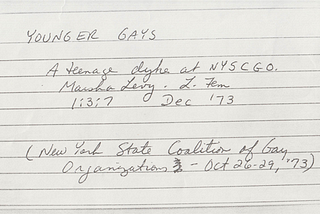 YOUNGER GAYS
A teenage dyke at NYSCGO.
Marsha Levy. L. Fem
1:3:7 Dec '73
(New York State Coalition of Gay
Organizations - Oct 26-29, '73)